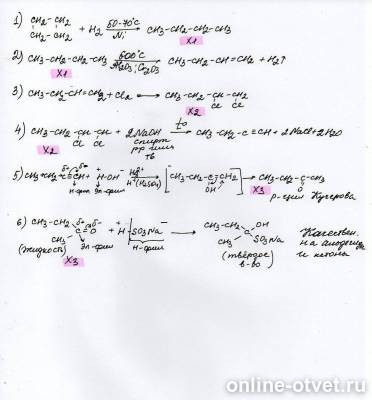 1) CH₂-CH₂
CH₂-CH₂ + H₂ 50-70°C Ni → CH₃-CH₂-CH₂-CH₃
X1
2) CH₃-CH₂-CH₂-CH₃ 600°C Al₂O₃; Cr₂O₃ → CH₃-CH₂-CH=CH₂ + H₂↑
X1
3) CH₃-CH₂-CH=CH₂ + Cl₂ → CH₃-CH₂-CH-CH₂
Cl Cl
X2
4) CH₃-CH₂-CH-CH₂ + 2NaOH t° → CH₃-CH₂-C≡CH + 2NaCl + 2H₂O
Cl Cl спирт.
X2 тв
5) CH₃-CH₂-C≡CH + H-OH Hg²⁺ H⁺(H₂SO₄) → [CH₃-CH₂-C=CH₂] → CH₃-CH₂-C-CH₃
н-фил эл-фил OH X3 O
р-ция Кучерова
6) CH₃-CH₂ C=O + H SO₃Na → CH₃-CH₂ C OH
CH₃ эл-фил н-фил CH₃ SO₃Na
(жидкость) (твёрдое в-во)
X3
Качествен. на альдегид и кетоны
online-otvet.ru